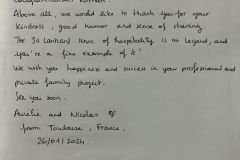 Above all, we would like to thank you for your
kindness, good humor and sense of sharing
The Sri Lankan sense of hospitality is no legend, and
you're a fine example of it!
We wish you happiness and success in your professional and
private family project.
See you soon.
Aurélie and Nicolas ♡
from Toulouse, France.
26/01/2024.